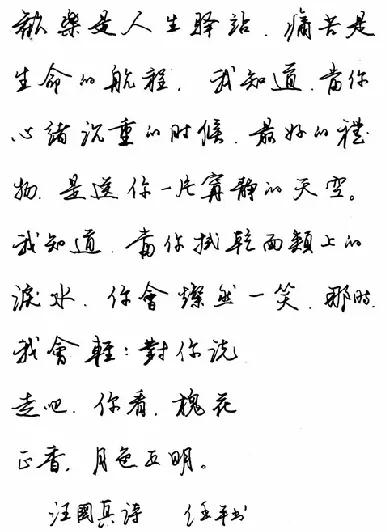 歡樂是人生驿站．痛苦是
生命的航程．我知道．當你
心緒沉重的时候．最好的禮
物．是送你一片寧靜的天空。
我知道．當你拭乾面頰上的
淚水．你會燦然一笑．那时．
我會輕：對你说
走吧．你看．槐花
正香．月色正明。
汪國真詩 任平书